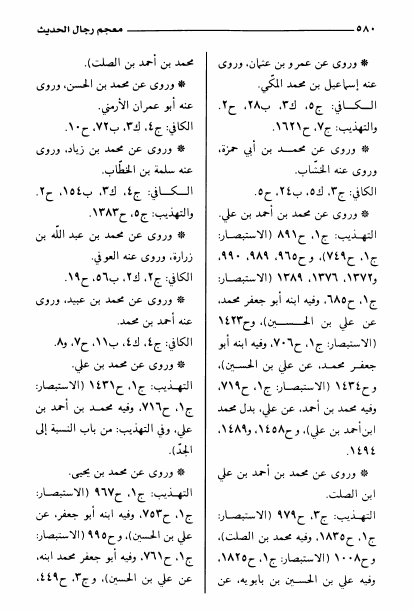 ٥٨٠ معجم رجال الحديث
* وروى عن عمرو بن عثمان، وروى
عنه إسماعيل بن محمد المكّي.
الـكـافي: ج٥، ك٣، ب٢٨، ح٢.
والتهذيب: ج٧، ح١٦٢١.
* وروى عن محمـد بن أبي حمزة،
وروى عنه الخشّاب.
الكافي: ج٣، ك٥، ب٢٤، ح٥.
* وروى عن محمد بن أحمد بن علي.
التهذيب: ج١، ح٨٩١ (الاستبصار:
ج١، ح٧٤٩)، و ح٩٦٥، ٩٨٩، ٩٩٠،
و١٣٧٢، ١٣٧٦، ١٣٨٩ (الاستبصار:
ج١، ح٦٨٥، وفيه ابنه أبو جعفر محمد،
عن علي بن الحـسـين)، و ح١٤٢٣
(الاستبصار: ج١، ح٧٠٦، وفيه ابنه أبو
جعفـر محمـد، عن علي بن الحسين)،
و ح١٤٣٤ (الاستبصار: ج١، ح٧١٩،
وفيه محمد بن أحمد، عن علي، بدل محمد
ابن أحمد بن علي)، و ح١٤٥٨، و١٤٨٩،
١٤٩٤.
* وروى عن محمد بن أحمد بن علي
ابن الصلت.
التهذيب: ج٣، ح٩٧٩ (الاستبصار:
ج١، ح١٨٣٥، وفيه محمد بن الصلت)،
و ح١٠٠٨ (الاستبصار: ج١، ح١٨٢٥،
وفيه علي بن الحسين بن بابويه، عن
محمد بن أحمد بن الصلت).
* وروى عن محمد بن الحسن، وروى
عنه أبو عمران الأرمني.
الكافي: ج٤، ك٣، ب٧٢، ح١٠.
* وروى عن محمد بن زياد، وروى
عنه سلمة بن الخطّاب.
الـكـافي: ج٤، ك٣، ب١٥٤، ح٢.
والتهذيب: ج٥، ح١٣٨٣.
* وروى عن محمد بن عبد اللّه بن
زرارة، وروى عنه العوفي.
الكافي: ج٢، ك٢، ب٥٦، ح١٩.
* وروى عن محمد بن عبيد، وروى
عنه أحمد بن محمد.
الكافي: ج٤، ك٤، ب١١، ح٧، و٨.
* وروى عن محمد بن علي.
التهذيب: ج١، ح١٤٣١ (الاستبصار:
ج١، ح٧١٦، وفيه محمـد بن أحمد بن
علي، وفي التهذيب: من باب النسبة إلى
الجدّ).
* وروى عن محمد بن يحيى.
التهذيب: ج١، ح٩٦٧ (الاستبصار:
ج١، ح٧٥٣، وفيه ابنه أبو جعفر، عن
علي بن الحسين)، و ح٩٩٥ (الاستبصار:
ج١، ح٧٦١، وفيه أبو جعفر محمد ابنه،
عن علي بن الحسين)، و ج٣، ح٤٤٩،